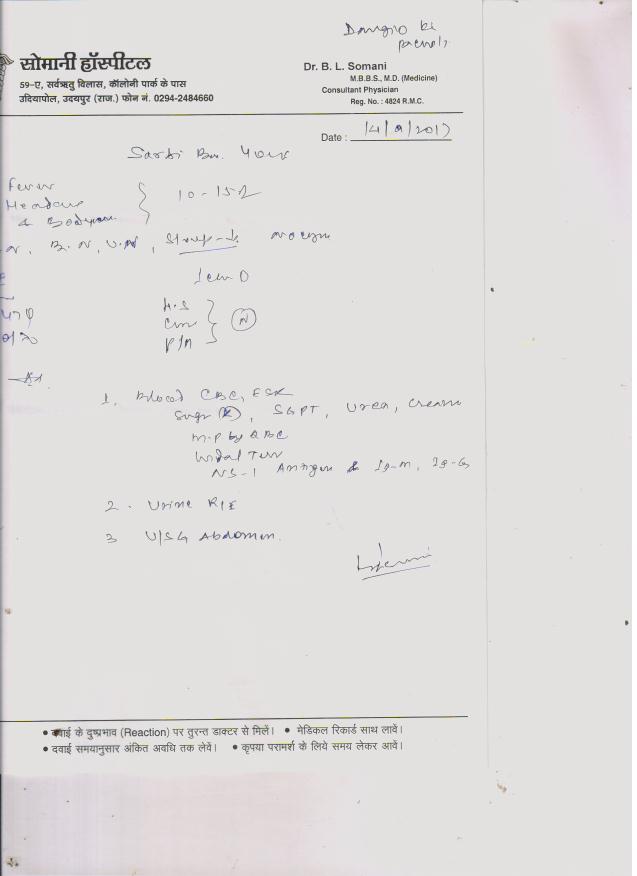 Dangio ki
pacholi
सोमानी हॉस्पीटल
59-ए, सर्वऋतु विलास, कॉलोनी पार्क के पास
उदियापोल, उदयपुर (राज.) फोन नं. 0294-2484660
Dr. B. L. Somani
M.B.B.S., M.D. (Medicine)
Consultant Physician
Reg. No. : 4824 R.M.C.
Date : 14/9/2017
Fever
10-15
B.N, U.N,
H.S
P/A
N
1. Blood CBC, ESR
Sugr (R), SGPT, Urea, Creatin
M.P by QBC
Widal Test
NS-1 Antigen & Ig-M, Ig-G
2. Urine R/E
3 U/SG Abdomen.
• दवाई के दुष्प्रभाव (Reaction) पर तुरन्त डाक्टर से मिलें। • मेडिकल रिकार्ड साथ लावें।
• दवाई समयानुसार अंकित अवधि तक लेवें। • कृपया परामर्श के लिये समय लेकर आवें।